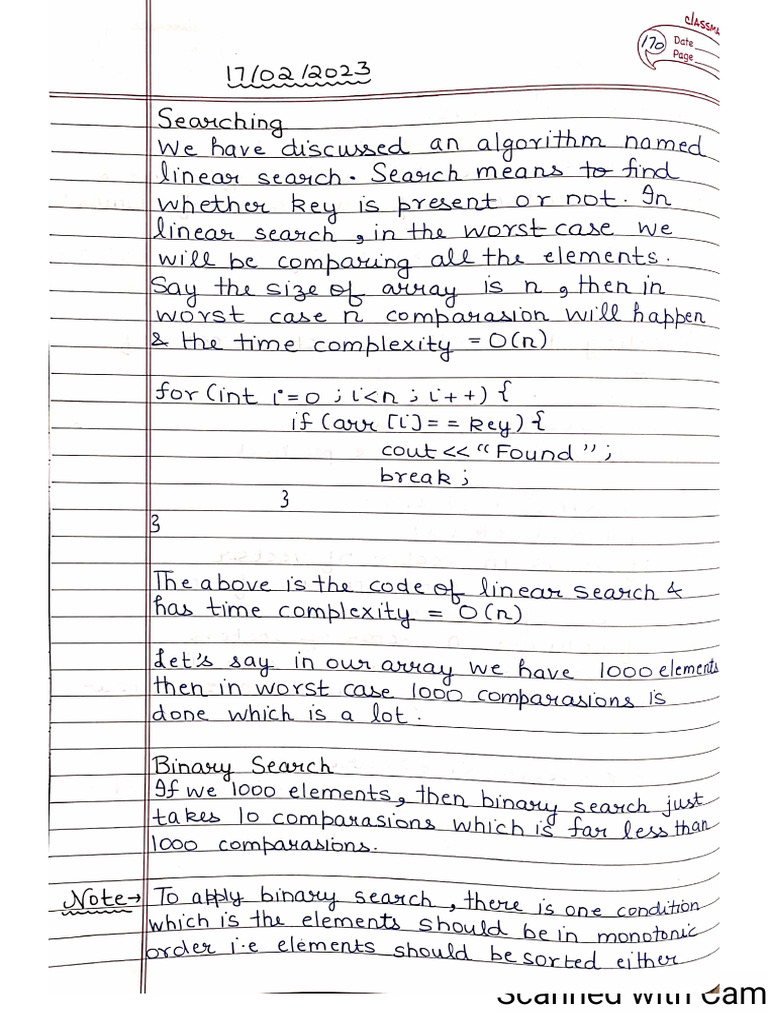 classma
170 Date
Page
17/02/2023
Searching
We have discussed an algorithm named
linear search. Search means to find
whether key is present or not. In
linear search, in the worst case we
will be comparing all the elements.
Say the size of array is n, then in
worst case n comparasion will happen
& the time complexity = O(n)
for (int i=0 ; i<n ; i++) {
if (arr [i] == key) {
cout << "Found" ;
break ;
}
}
The above is the code of linear search &
has time complexity = O(n)
Let's say in our array we have 1000 elements
then in worst case 1000 comparasions is
done which is a lot.
Binary Search
If we 1000 elements, then binary search just
takes 10 comparasions which is far less than
1000 comparasions.
Note→ To apply binary search, there is one condition
which is the elements should be in monotonic
order i.e elements should be sorted either
Scanned with Cam